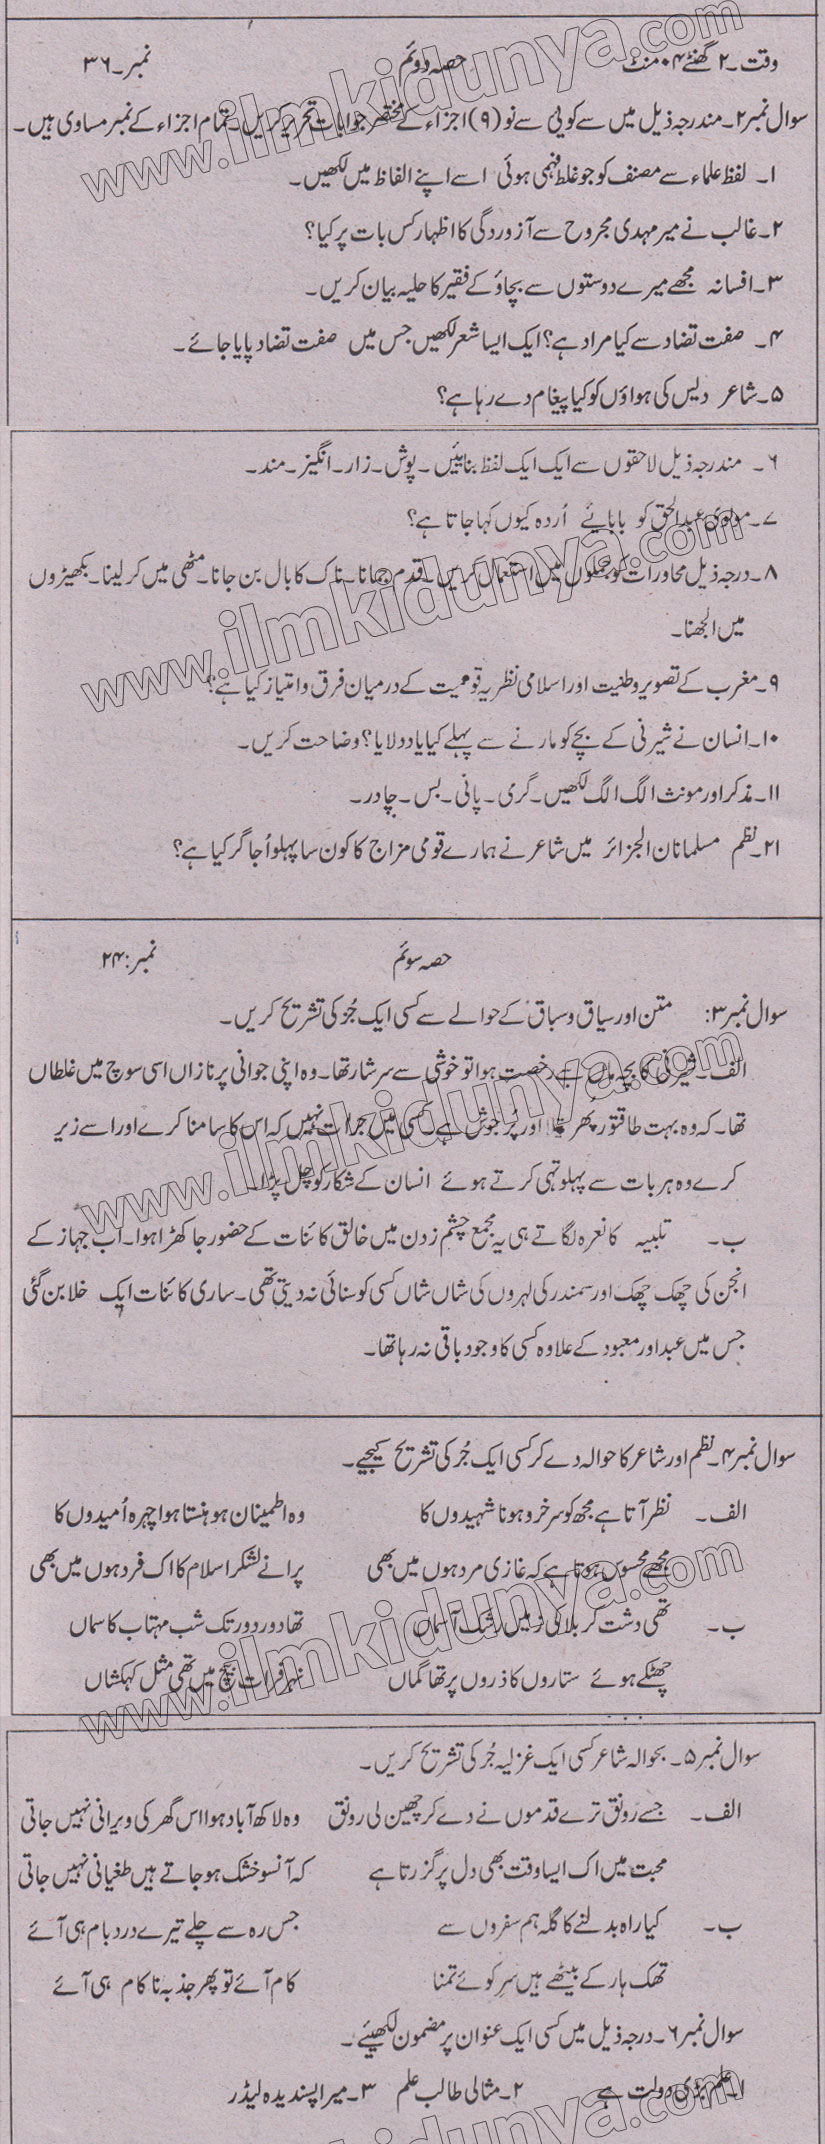 وقت۔۲ گھنٹے ۴۰ منٹ حصہ دوئم نمبر۔۳۶
سوال نمبر۲۔مندرجہ ذیل میں سے کوئی سے نو(۹)اجزاء کے مختصر جوابات تحریر کریں۔تمام اجزاء کے نمبر مساوی ہیں۔
۱۔ لفظ علماء سے مصنف کو جو غلط فہمی ہوئی اسے اپنے الفاظ میں لکھیں۔
۲۔غالب نے میر مہدی مجروح سے آزوردگی کا اظہار کس بات پر کیا؟
۳۔افسانہ مجھے میرے دوستوں سے بچاؤ کے فقیر کا حلیہ بیان کریں۔
۴۔ صفت تضاد سے کیا مراد ہے؟ ایک ایسا شعر لکھیں جس میں صفت تضاد پایا جائے۔
۵۔شاعر دیس کی ہواؤں کو کیا پیغام دے رہا ہے؟
۶۔ مندرجہ ذیل لاحقوں سے ایک ایک لفظ بنائیں۔پوش۔زار۔انگیز۔مند۔
۷۔مولوی عبدالحق کو بابائے اُردہ کیوں کہا جاتا ہے؟
۸۔درجہ ذیل محاورات کو جملوں میں استعمال کریں۔قدم جمانا۔ناک کا بال بن جانا۔مٹھی میں کر لینا۔بکھیڑوں
میں الجھنا۔
۹۔مغرب کے تصویر وطنیت اور اسلامی نظریہ قومیت کے درمیان فرق و امتیاز کیا ہے؟
۱۰۔انسان نے شیرنی کے بچے کو مارنے سے پہلے کیا یاد دلایا؟ وضاحت کریں۔
۱۱۔مذکر اور مونث الگ الگ لکھیں۔گری۔پانی۔بس۔چادر۔
۲۱۔نظم مسلمانان الجزائر میں شاعر نے ہمارے قومی مزاج کا کون سا پہلو اُجاگر کیا ہے؟
حصہ سوئم نمبر:۲۴
سوال نمبر۳: متن اور سیاق و سباق کے حوالے سے کسی ایک جُز کی تشریح کریں۔
الف۔شیرنی کا بچہ ماں سے رخصت ہوا تو خوشی سے سرشار تھا۔وہ اپنی جوانی پر نازاں اسی سوچ میں غلطاں
تھا۔کہ وہ بہت طاقتور پُھرتیلا اور پُر جوش ہے۔کسی میں جرات نہیں کہ اس کا سامنا کرے اور اسے زیر
کرے وہ ہر بات سے پہلو تہی کرتے ہوئے انسان کے شکار کو چل پڑا۔
ب۔ تلبیہ کا نعرہ لگاتے ہی یہ مجمع چشم زدن میں خالق کائنات کے حضور جا کھڑا ہوا۔اب جہاز کے
انجن کی چھک چھک اور سمندر کی لہروں کی شاں شاں کسی کو سنائی نہ دیتی تھی۔ساری کائنات ایک خلا بن گئی
جس میں عبد اور معبود کے علاوہ کسی کا وجود باقی نہ رہا تھا۔
سوال نمبر۴۔نظم اور شاعر کا حوالہ دے کر کسی ایک جُر کی تشریح کیجیے۔
الف۔ نظر آتا ہے مجھ کو سرخرو ہونا شہیدوں کا وہ اطمینان ہو ہنستا ہوا چہرہ اُمیدوں کا
مجھے محسوس ہوتا ہے کہ غازی مرد ہوں میں بھی پرانے لشکر اسلام کا اک فرد ہوں میں بھی
ب۔ تھی دشت کربلا کی زمیں رشک آسماں تھا دور دور تک شب مہتاب کا سماں
چھٹکے ہوئے ستاروں کا ذروں پر تھا گماں نہر فرات بیچ میں تھی مثل کہکشاں
سوال نمبر۵۔ بحوالہ شاعر کسی ایک غزلیہ جُر کی تشریح کریں۔
الف۔ جسے رونق ترے قدموں نے دے کر چھین لی رونق وہ لاکھ آباد ہو اس گھر کی ویرانی نہیں جاتی
محبت میں اک ایسا وقت بھی دل پر گزرتا ہے کہ آنسو خشک ہو جاتے ہیں طغیانی نہیں جاتی
ب۔ کیا راہ بدلنے کا گلہ ہم سفروں سے جس رہ سے چلے تیرے درد بام ہی آئے
تھک ہار کے بیٹھے ہیں سرِ کوئے تمنا کام آئے تو پھر جذبہ ناکام ہی آئے
سوال نمبر۶۔درجہ ذیل میں کسی ایک عنوان پر مضمون لکھیئے۔
۱۔علم بڑی دولت ہے ۲۔مثالی طالب علم ۳۔میرا پسندیدہ لیڈر
www.ilmkidunya.com
www.ilmkidunya.com
www.ilmkidunya.com
www.ilmkidunya.com